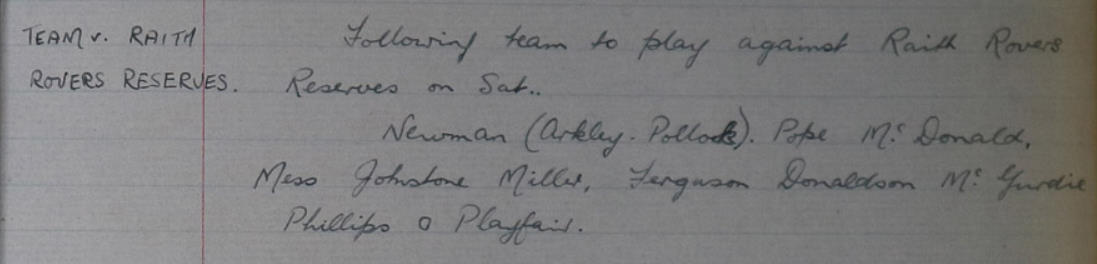 TEAM v. RAITH
ROVERS RESERVES.
Following team to play against Raith Rovers
Reserves on Sat..
Newman (Arkley. Pollock). Pope Mc Donald,
Mess Johnstone Miller, Ferguson Donaldson Mc Gurdie
Phillips o Playfair.